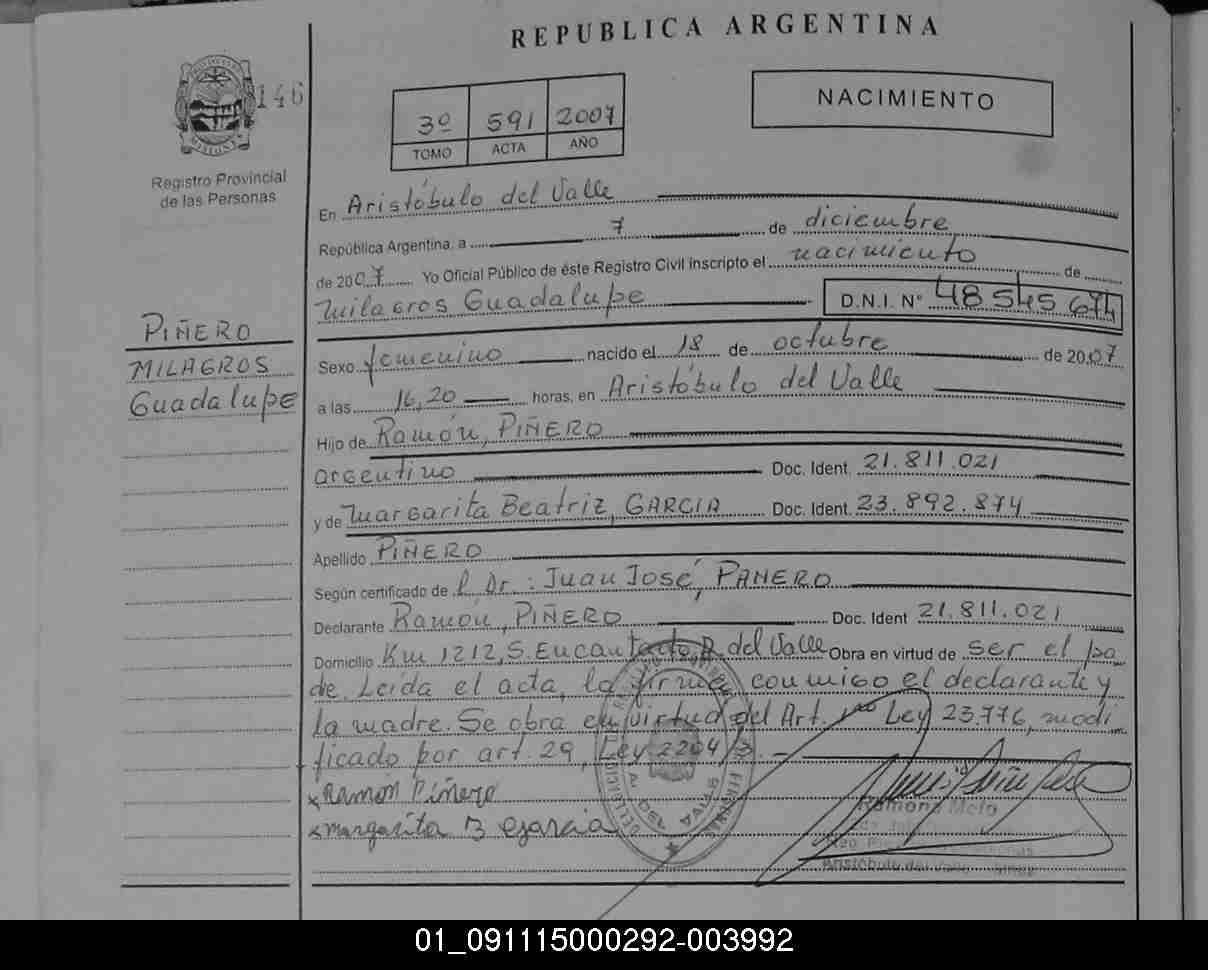 REPUBLICA ARGENTINA
PROVINCIA DE MISIONES
146
Registro Provincial
de las Personas
3º 591 2007
TOMO ACTA AÑO
NACIMIENTO
En Aristóbulo del Valle
República Argentina, a 7 de diciembre
de 2007 Yo Oficial Público de éste Registro Civil inscripto el nacimiento de
Milagros Guadalupe D.N.I. Nº 48 545 674
PIÑERO
MILAGROS
Guadalupe
Sexo femenino nacido el 18 de octubre de 2007
a las 16,20 horas, en Aristóbulo del Valle
Hijo de Ramón, PIÑERO
argentino Doc. Ident. 21.811.021
y de Margarita Beatriz, GARCIA Doc. Ident. 23.892.874
Apellido PIÑERO
Según certificado de l Dr.: Juan José, PANERO
Declarante Ramón, PIÑERO Doc. Ident 21.811.021
Domicilio Km 1212, S. Encantado, A. del Valle Obra en virtud de ser el pa
de. Leída el acta, la firma conmigo el declarante y
la madre. Se obra en virtud del Art. 1ro Ley 23.776, modi
ficado por art. 29, Ley 22
Ramón Piñero
Margarita B Garcia
Ramona Melo
Aristóbulo del Valle
01_091115000292-003992